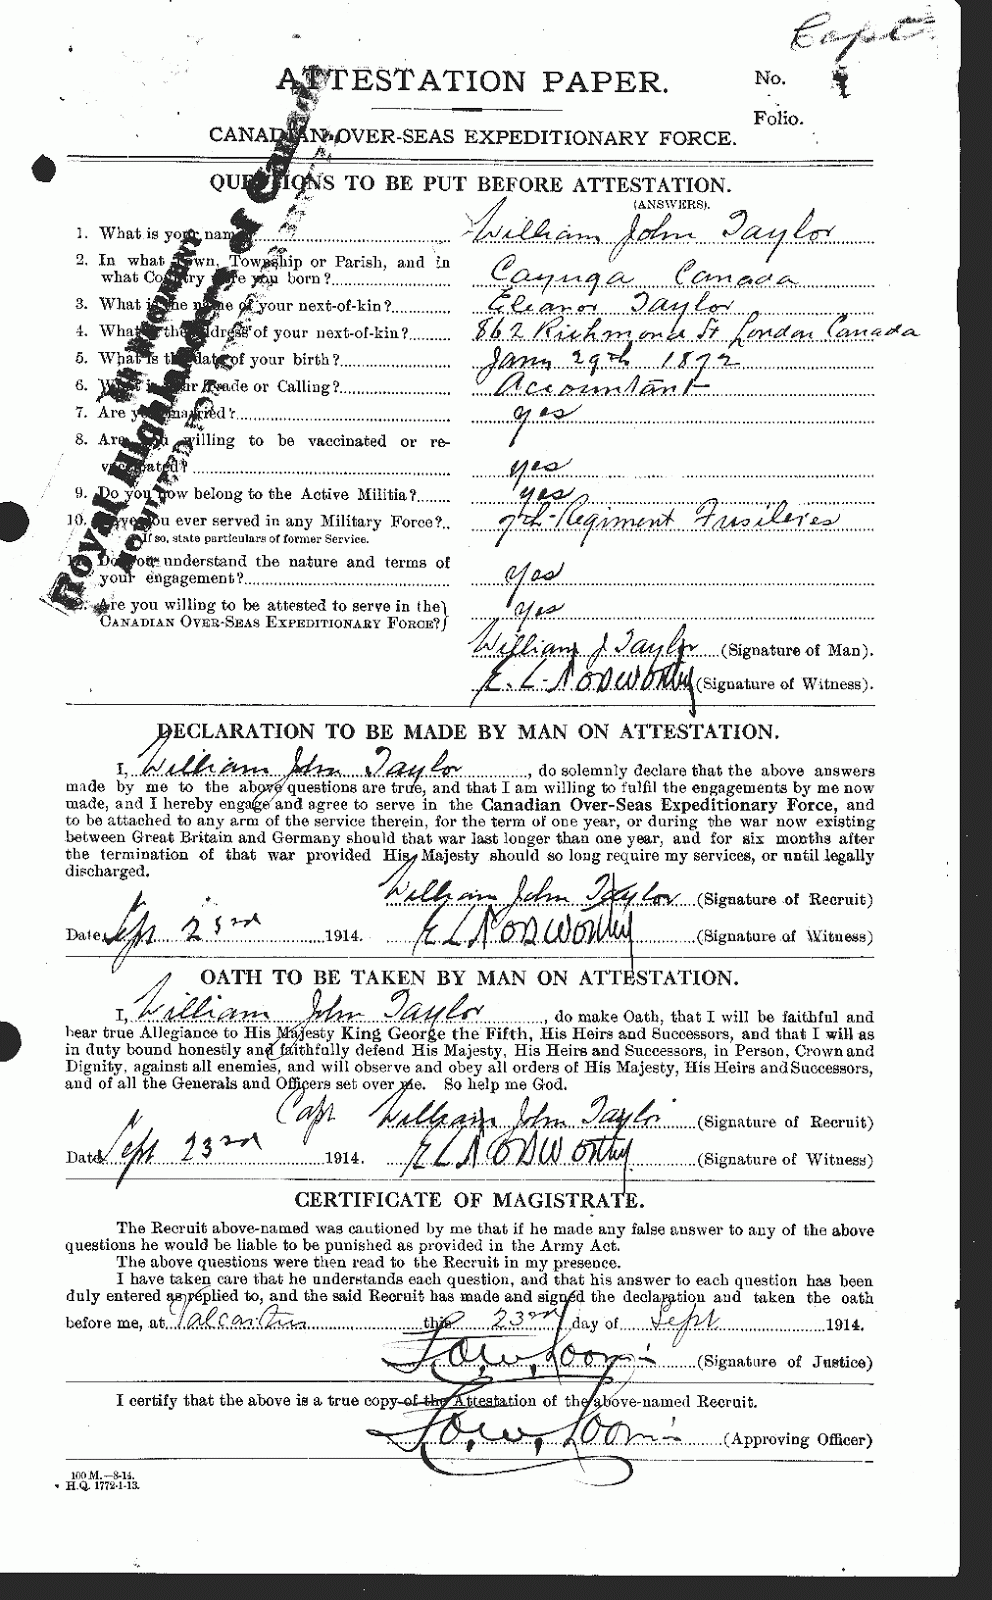 Capt
ATTESTATION PAPER.
No.
Folio.
CANADIAN OVER-SEAS EXPEDITIONARY FORCE.
QUESTIONS TO BE PUT BEFORE ATTESTATION.
(ANSWERS).
1. What is your name? William John Taylor
2. In what Town, Township or Parish, and in
what Country were you born? Cayuga Canada
3. What is the name of your next-of-kin? Eleanor Taylor
4. What is the address of your next-of-kin? 862 Richmond St London Canada
5. What is the date of your birth? Jany 29th 1872
6. What is your Trade or Calling? Accountant
7. Are you married? yes
8. Are you willing to be vaccinated or re-
vaccinated? yes
9. Do you now belong to the Active Militia? yes
10. Have you ever served in any Military Force? 7th Regiment Fusiliers
If so, state particulars of former Service.
11. Do you understand the nature and terms of
your engagement? yes
12. Are you willing to be attested to serve in the
CANADIAN OVER-SEAS EXPEDITIONARY FORCE? yes
Royal Highlanders of Canada
William J Taylor (Signature of Man).
E. L. Nodworthy (Signature of Witness).
DECLARATION TO BE MADE BY MAN ON ATTESTATION.
I, William John Taylor, do solemnly declare that the above answers
made by me to the above questions are true, and that I am willing to fulfil the engagements by me now
made, and I hereby engage and agree to serve in the Canadian Over-Seas Expeditionary Force, and
to be attached to any arm of the service therein, for the term of one year, or during the war now existing
between Great Britain and Germany should that war last longer than one year, and for six months after
the termination of that war provided His Majesty should so long require my services, or until legally
discharged.
William John Taylor (Signature of Recruit)
Date Sept 23rd 1914. E L Nodworthy (Signature of Witness)
OATH TO BE TAKEN BY MAN ON ATTESTATION.
I, William John Taylor, do make Oath, that I will be faithful and
bear true Allegiance to His Majesty King George the Fifth, His Heirs and Successors, and that I will as
in duty bound honestly and faithfully defend His Majesty, His Heirs and Successors, in Person, Crown and
Dignity, against all enemies, and will observe and obey all orders of His Majesty, His Heirs and Successors,
and of all the Generals and Officers set over me. So help me God.
Capt William John Taylor (Signature of Recruit)
Date Sept 23rd 1914. E L Nodworthy (Signature of Witness)
CERTIFICATE OF MAGISTRATE.
The Recruit above-named was cautioned by me that if he made any false answer to any of the above
questions he would be liable to be punished as provided in the Army Act.
The above questions were then read to the Recruit in my presence.
I have taken care that he understands each question, and that his answer to each question has been
duly entered as replied to, and the said Recruit has made and signed the declaration and taken the oath
before me, at Valcartier this 23rd day of Sept 1914.
F.O.W. Loomis (Signature of Justice)
I certify that the above is a true copy of the Attestation of the above-named Recruit.
F.O.W. Loomis (Approving Officer)
100 M.—8-14.
H.Q. 1772-1-13.